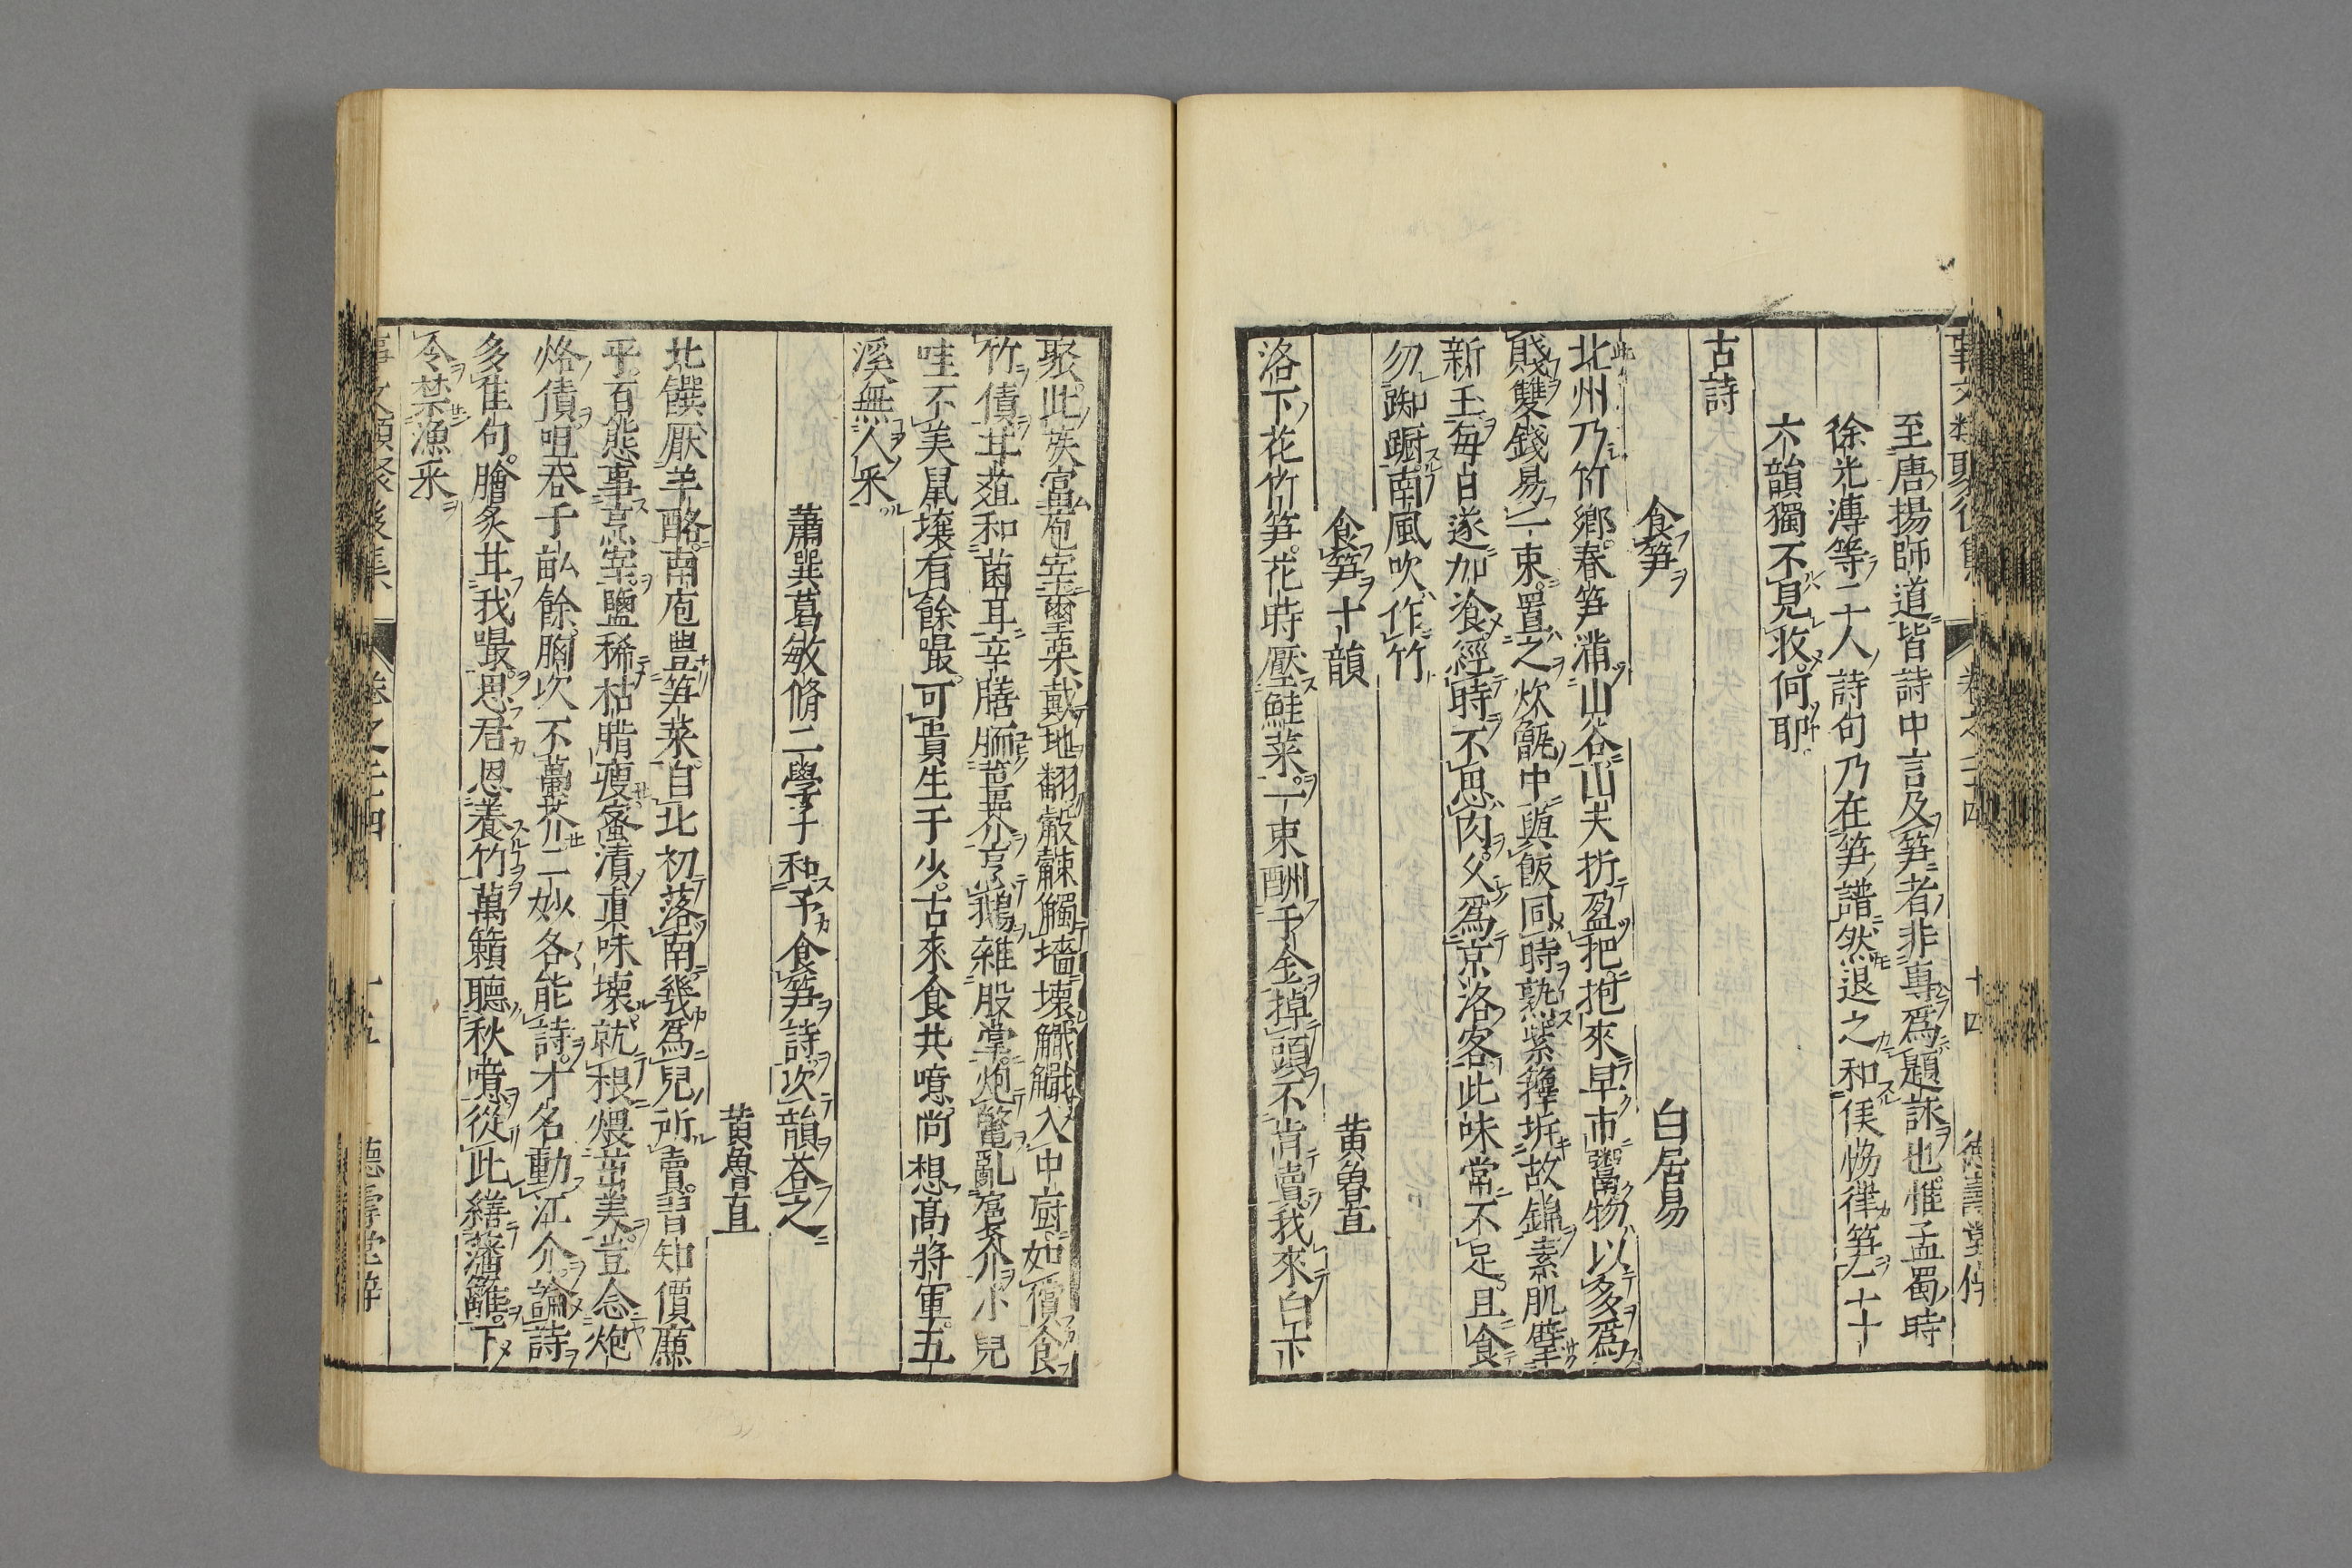 至唐揚師道皆詩中言及笋者非專爲題詠也惟孟蜀時
徐光溥等二人詩句乃在笋譜然退之和侯恊律笋二十
六韻獨不見收何耶
古詩
食笋 白居易
北州乃竹鄉春笋滿山谷山夫折盈把抱來早市鬻物以多爲
賤雙錢易一束置之炊甑中與飯同時熟紫籜坼故錦素肌擘
新玉每日遂加飡經時不思肉久爲京洛客此味常不足且食
勿踟蹰南風吹作竹
食笋十韻 黄魯直
洛下花竹笋花時壓鮭菜一束酬千金掉頭不肯賣我來白下
聚此族富庖宰璽栗戴地翻觳觫觸墻壞觿觿入中厨如償食
竹債甘菹和菌耳辛膳胹薑芥烹鵝雜股掌炮鼈亂裙介小兒
哇不美鼠壤有餘嘬可貴生于少古來食共噫尚想高將軍五
溪無人采
蕭巽葛敏脩二學子和予食笋詩次韻荅之
黄魯直
北饌厭羊酪南庖豊笋菜自北初落南幾爲兒所賣習知價廉
平百態事烹宰鹽稀枯腊瘦蜜漬真味壞就根煨茁美豈念炮
烙債咀吞千畝餘胸次不蔕芥二妙各能詩才名動江介論詩
多佳句膾炙甘我嘬思君恩養竹萬籟聽秋噫從此繕藩籬下
令禁漁采
卷之二十四
十四
十五